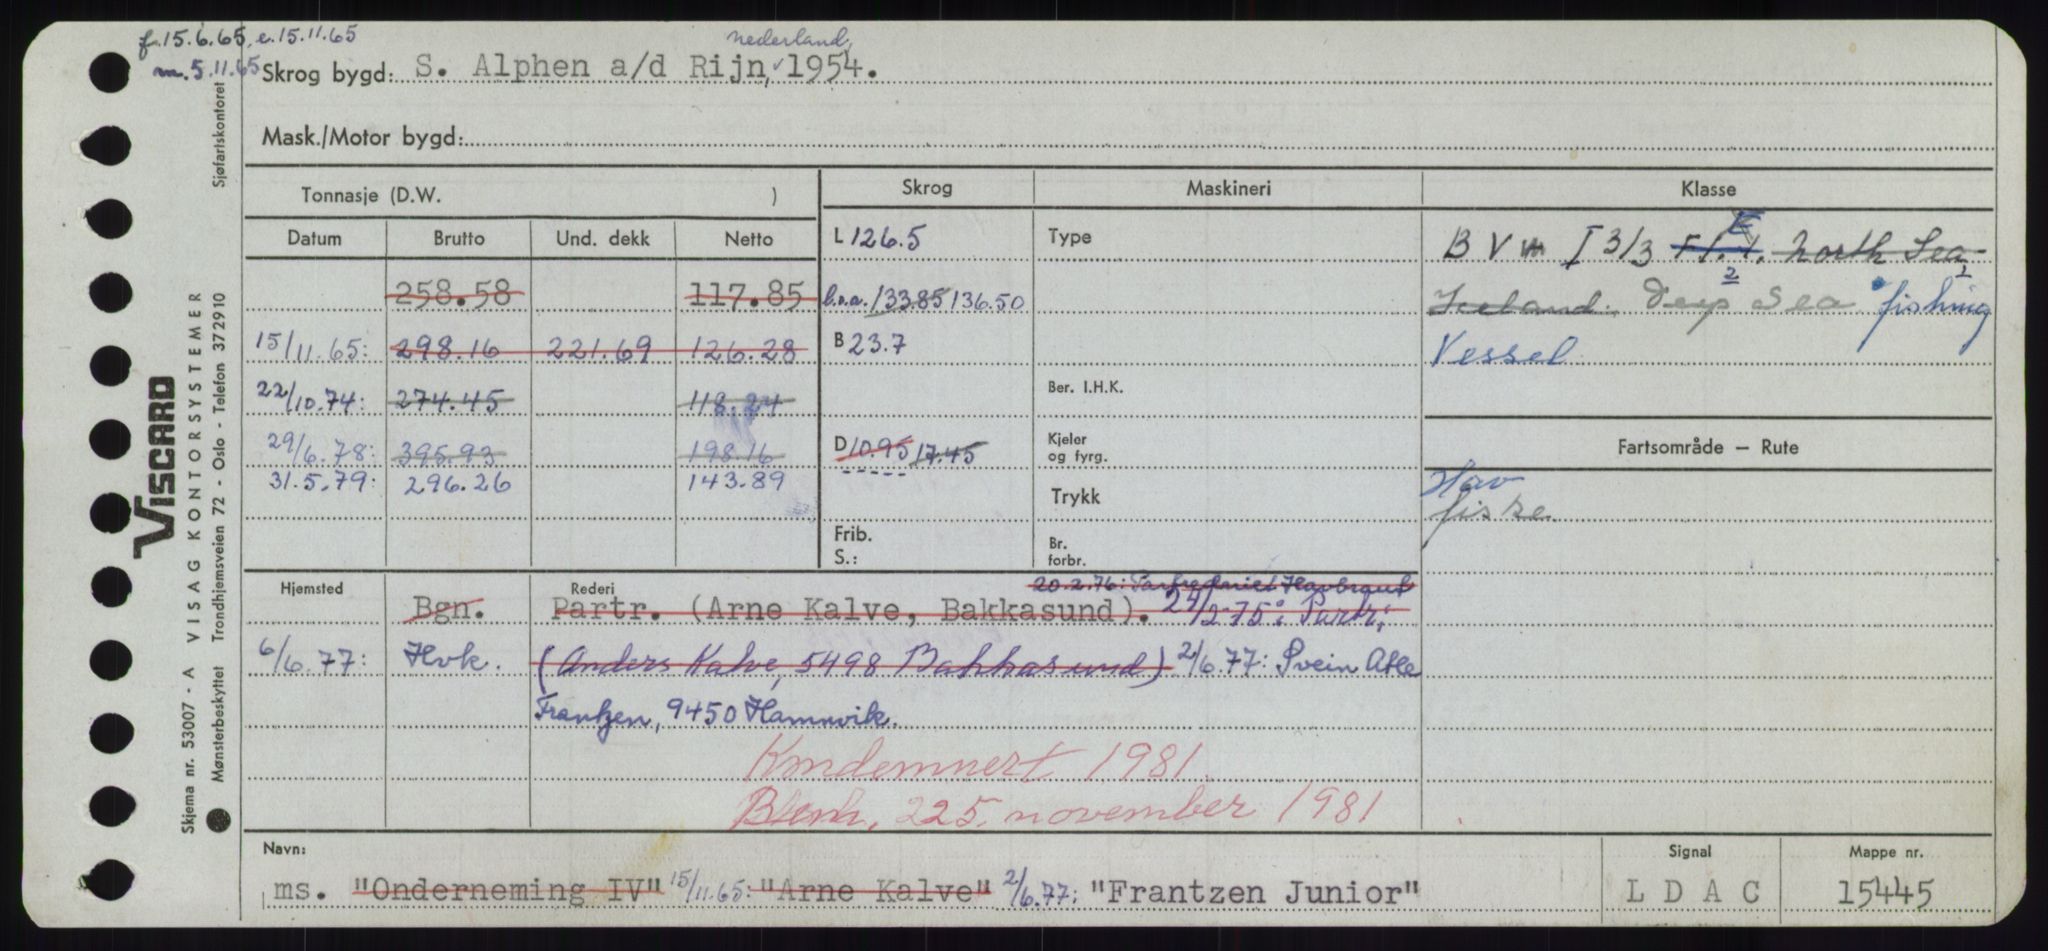 f. 15.6.65, e. 15.11.65
m. 5.11.65
nederland,
Skrog bygd: S. Alphen a/d Rijn, 1954.
Mask./Motor bygd:
Tonnasje (D.W. )
Skrog Maskineri Klasse
Datum Brutto Und. dekk Netto
258.58 117.85
15/11.65: 298.16 221.69 126.28
22/10.74: 274.45 118.24
29/6.78: 395.93 198.16
31.5.79: 296.26 143.89
L 126.5
l.o.a. 133.85 136.50
B 23.7
D 10.95 17.45
Frib.
S.:
Type
Ber. I.H.K.
Kjeler
og fyrg.
Trykk
Br.
forbr.
B V m I 3/3 North Sea
Iceland. Deep Sea fishing
Vessel
Fartsområde – Rute
Hav
fiske
Hjemsted
Rederi
20.2.76: Partrederiet Havbraut
Bgn. Partr. (Arne Kalve, Bakkasund). 24/2-75: Partr.
6/6.77: Hvk. (Anders Kalve, 5498 Bakkasund) 2/6.77: Svein Atle
Frantzen, 9450 Hamnvik.
Kondemnert 1981.
25. november 1981
Navn:
ms. "Onderneming IV" 15/11.65: "Arne Kalve" 2/6.77: "Frantzen Junior"
Signal
L D A C
Mappe nr.
15445
Skjema nr. 53007 - A VISAG KONTORSYSTEMER
VISCARD
Mønsterbeskyttet Trondhjemsveien 72 - Oslo - Telefon 372910
Sjøfartskontoret